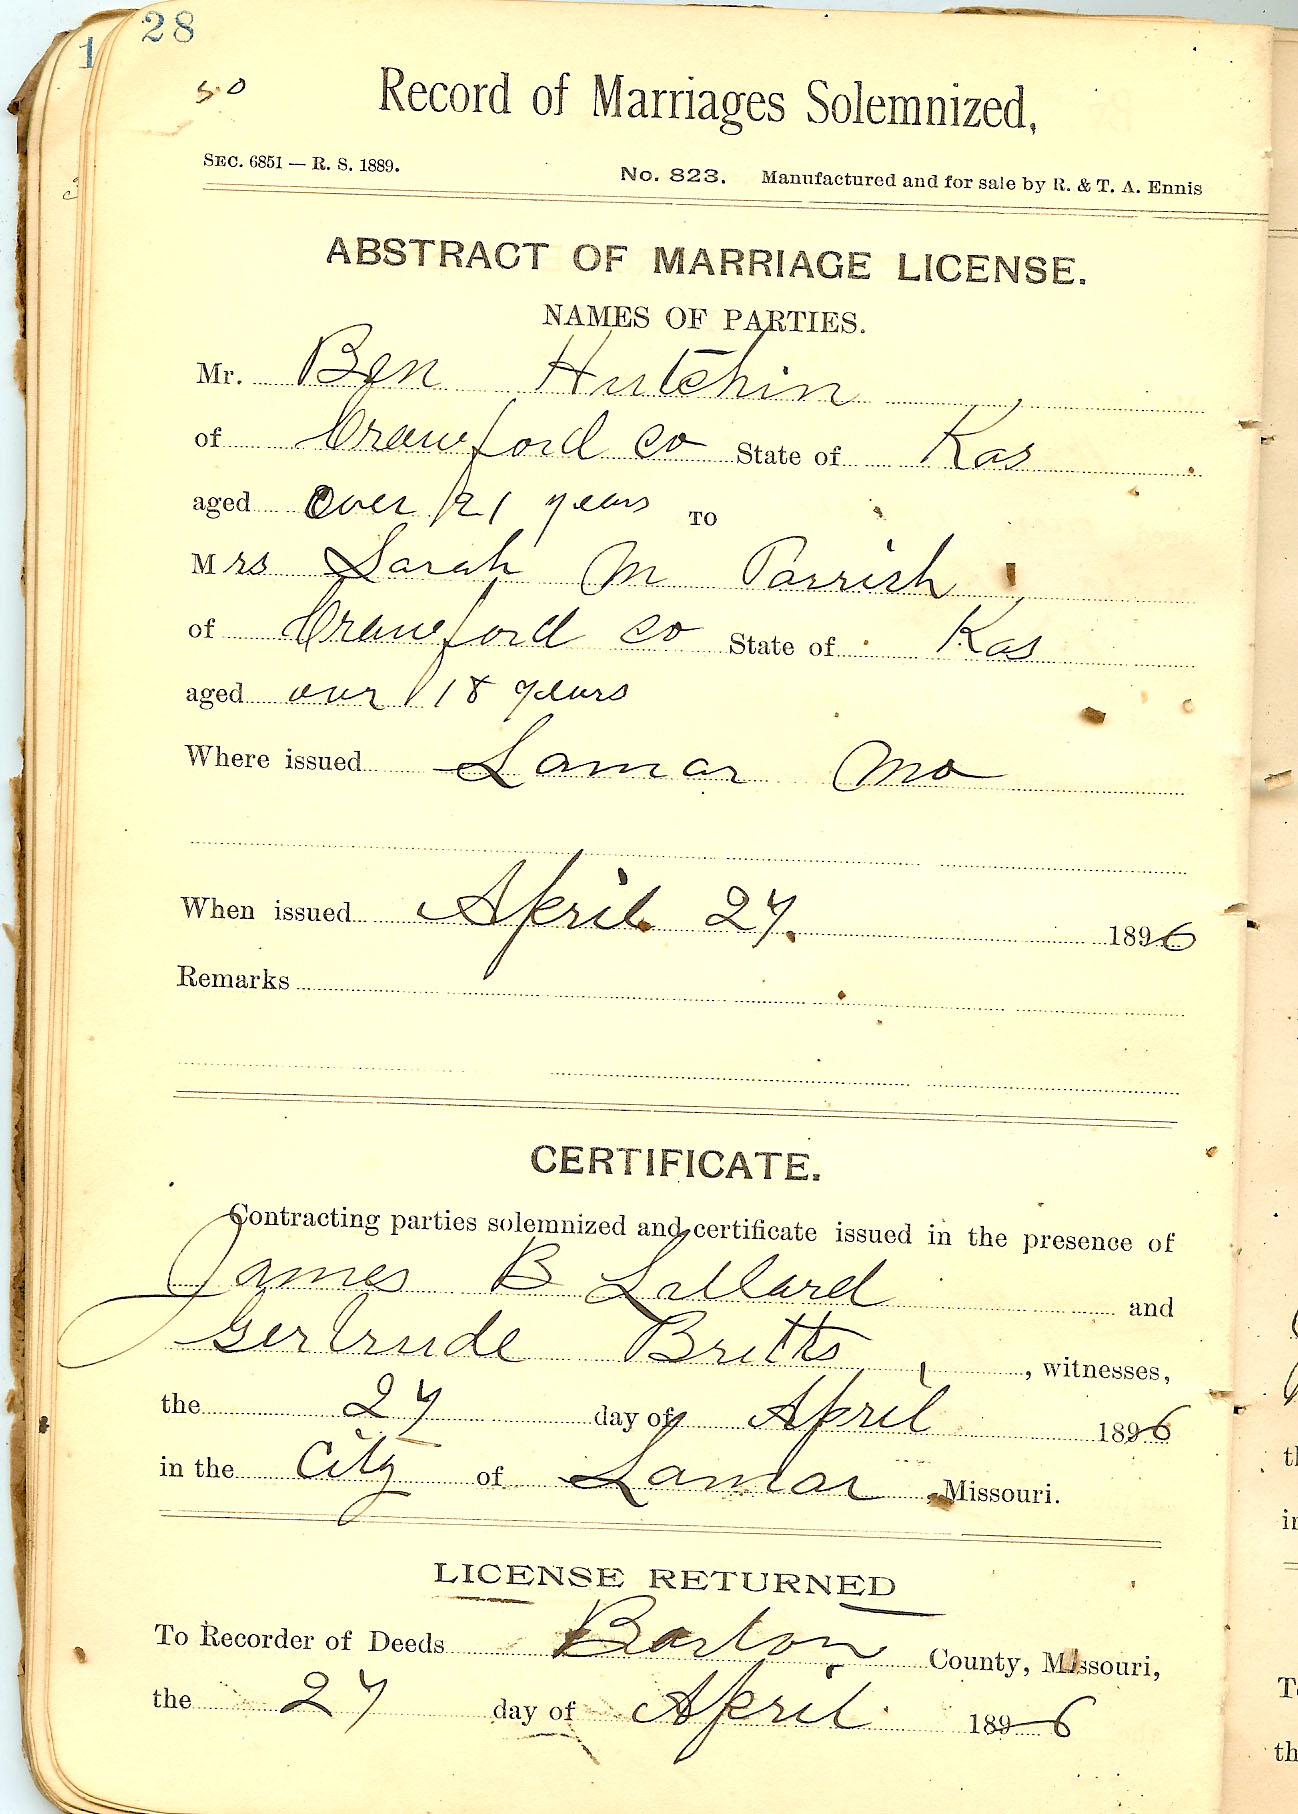 28
1
50
Record of Marriages Solemnized,
SEC. 6851 — R. S. 1889. No. 823. Manufactured and for sale by R. & T. A. Ennis
ABSTRACT OF MARRIAGE LICENSE.
NAMES OF PARTIES.
Mr. Ben Hutchin
of Crawford co State of Kas
aged over 21 years TO
Mrs Sarah M Parrish
of Crawford co State of Kas
aged over 18 years
Where issued Lamar Mo
When issued April 27. 1896
Remarks
CERTIFICATE.
Contracting parties solemnized and certificate issued in the presence of
James B Lillard and
Gertrude Britts, witnesses,
the 27 day of April 1896
in the City of Lamar, Missouri.
LICENSE RETURNED
To Recorder of Deeds Barton County, Missouri,
the 27 day of April 1896